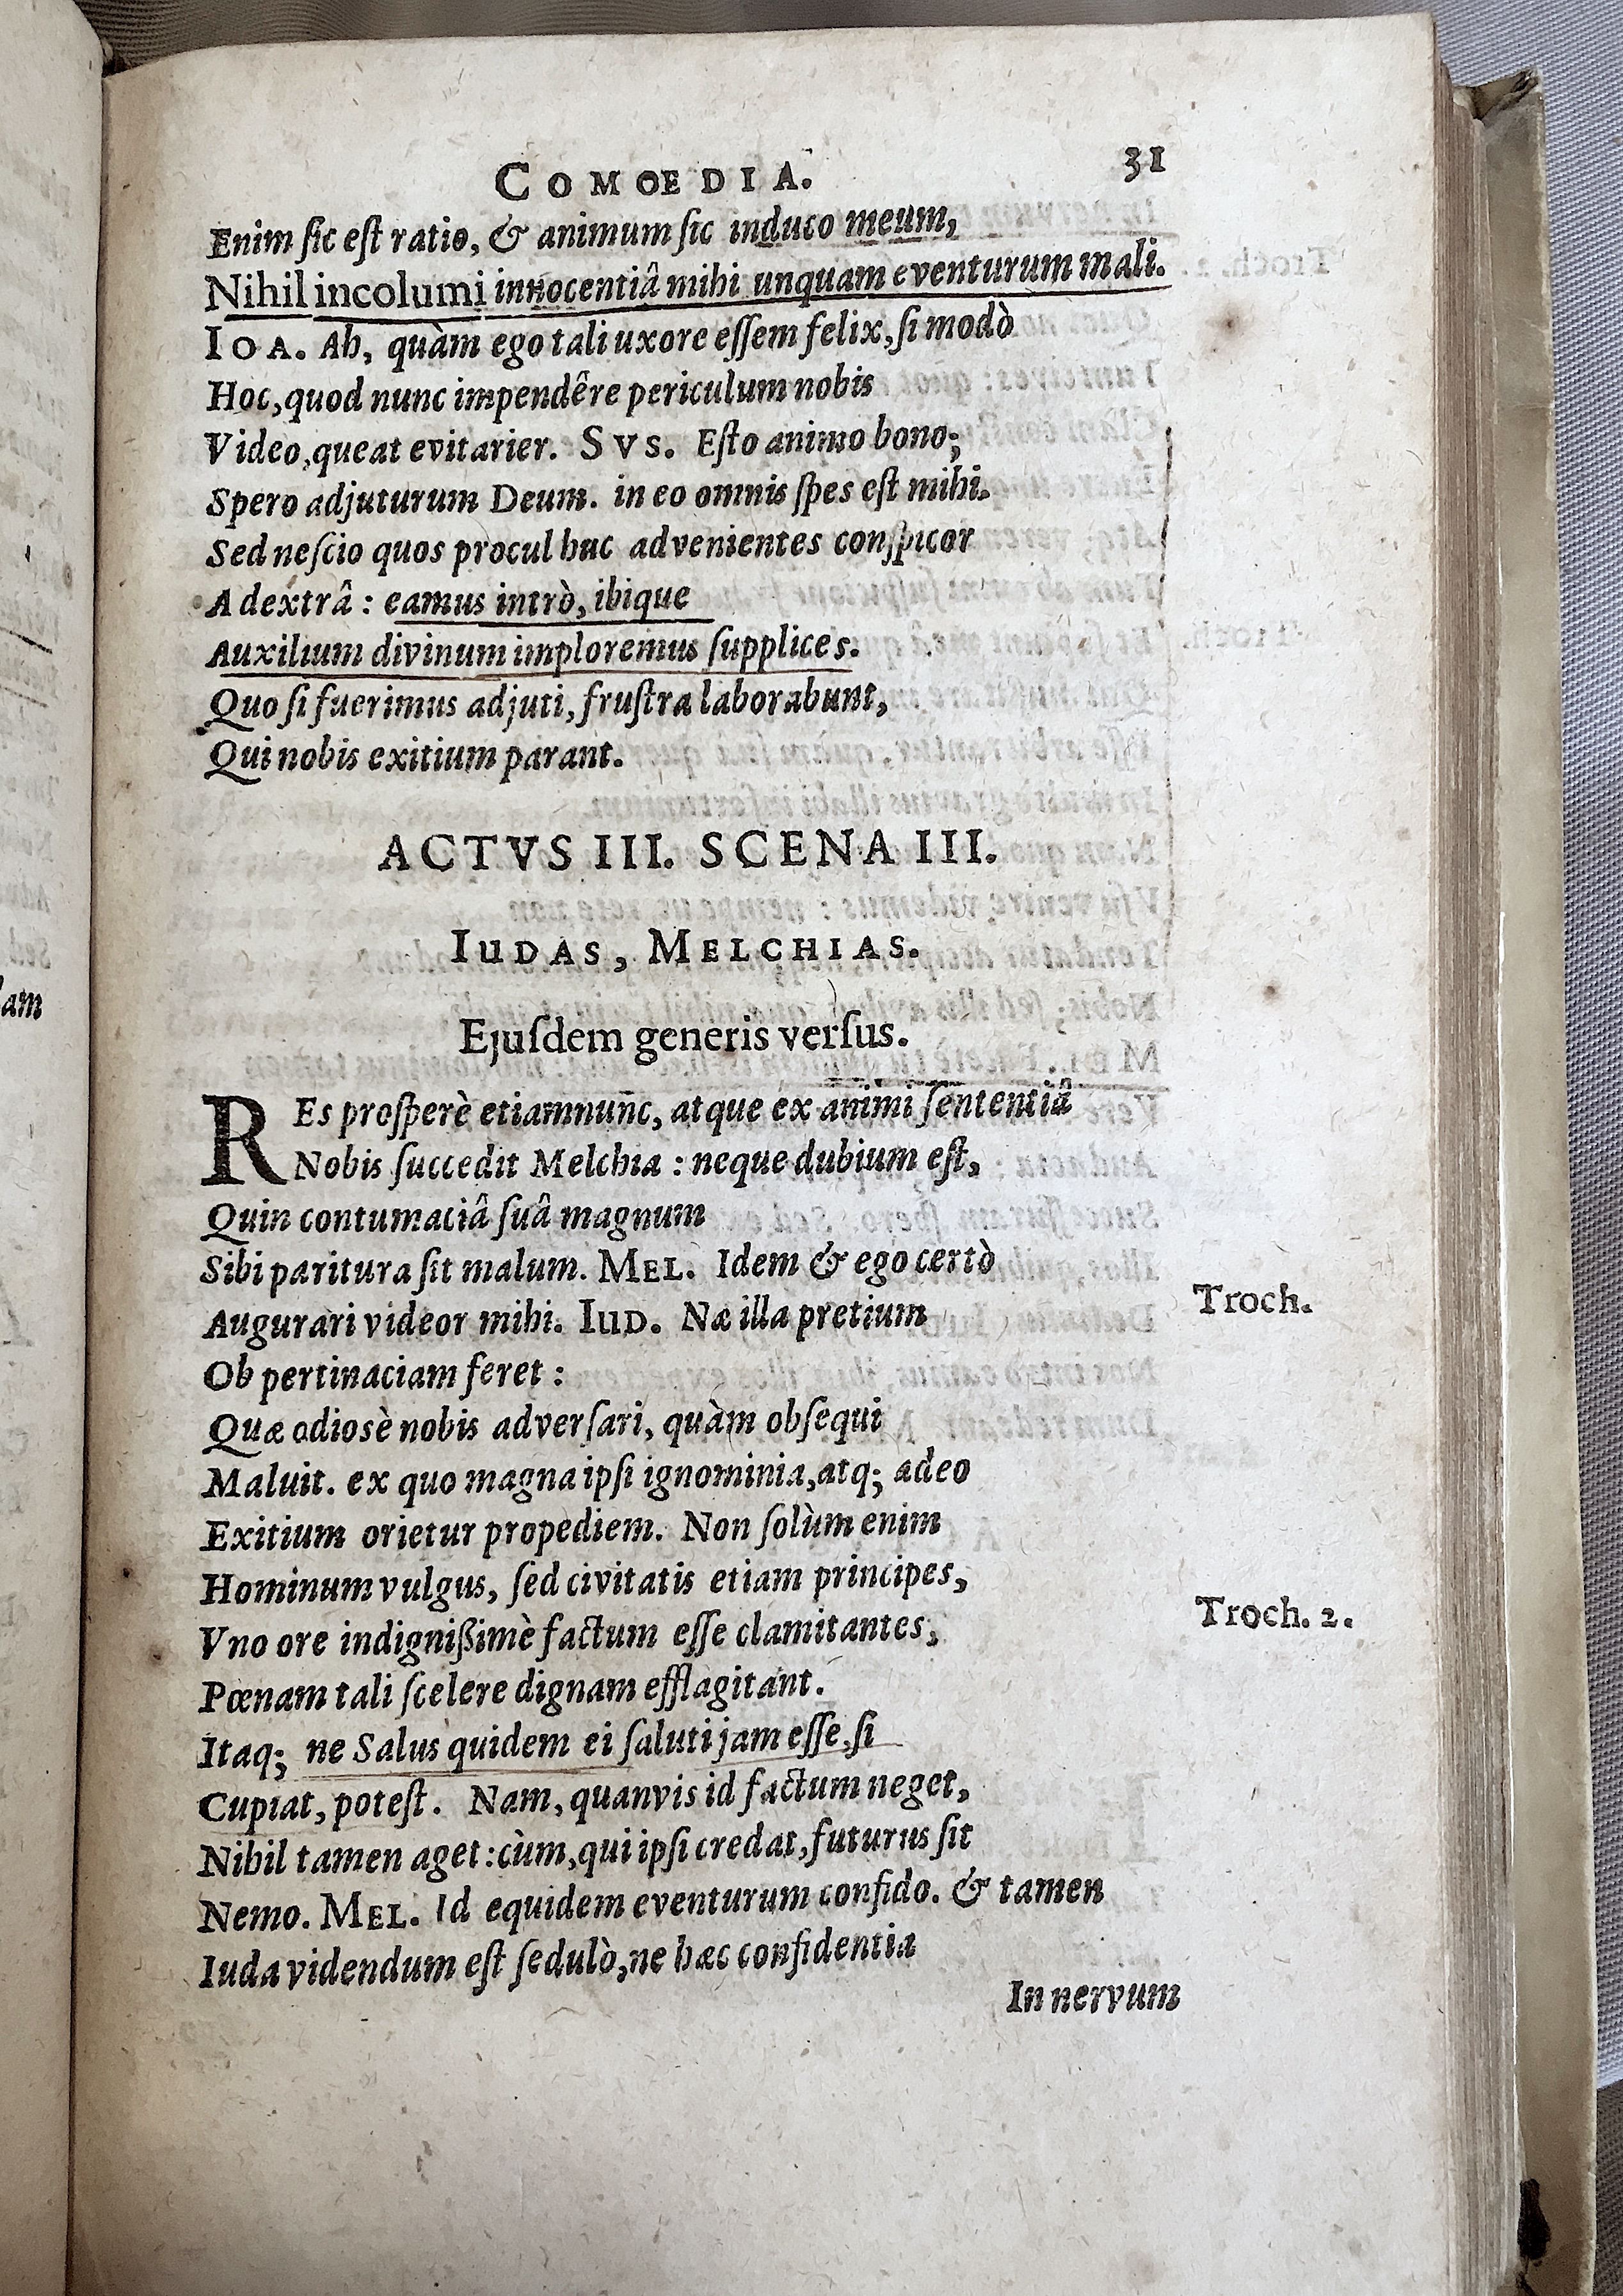 COMŒDIA. 31
Enim ſic eſt ratio, & animum ſic induco meum,
Nihil incolumi innocentiâ mihi unquam eventurum mali.
IOA. Ah, quàm ego tali uxore eſſem felix, ſi modò
Hoc, quod nunc impendêre periculum nobis
Video, queat evitarier. SVS. Eſto animo bono;
Spero adjuturum Deum. in eo omnis ſpes eſt mihi.
Sed neſcio quos procul huc advenientes conſpicor
A dextrâ: eamus intrò, ibique
Auxilium divinum imploremus ſupplices.
Quo ſi fuerimus adjuti, fruſtra laborabunt,
Qui nobis exitium parant.
ACTVS III. SCENA III.
IuDAS, MELCHIAS.
Ejuſdem generis verſus.
REs proſperè etiamnunc, atque ex animi ſententiâ
Nobis ſuccedit Melchia: neque dubium eſt,
Quin contumaciâ ſuâ magnum
Sibi paritura ſit malum. MEL. Idem & ego certò
Augurari videor mihi. IuD. Næ illa pretium Troch.
Ob pertinaciam feret:
Quæ odiosè nobis adverſari, quàm obſequi
Maluit. ex quo magna ipſi ignominia, atq; adeo
Exitium orietur propediem. Non ſolùm enim
Hominum vulgus, ſed civitatis etiam principes,
Vno ore indignißimè factum eſſe clamitantes, Troch. 2.
Pœnam tali ſcelere dignam efflagitant.
Itaq; ne Salus quidem ei ſaluti jam eſſe, ſi
Cupiat, poteſt. Nam, quanvis id factum neget,
Nihil tamen aget: cùm, qui ipſi credat, futurus ſit
Nemo. MEL. Id equidem eventurum confido. & tamen
Iuda videndum eſt ſedulò, ne hæc confidentia
In nervum
lam